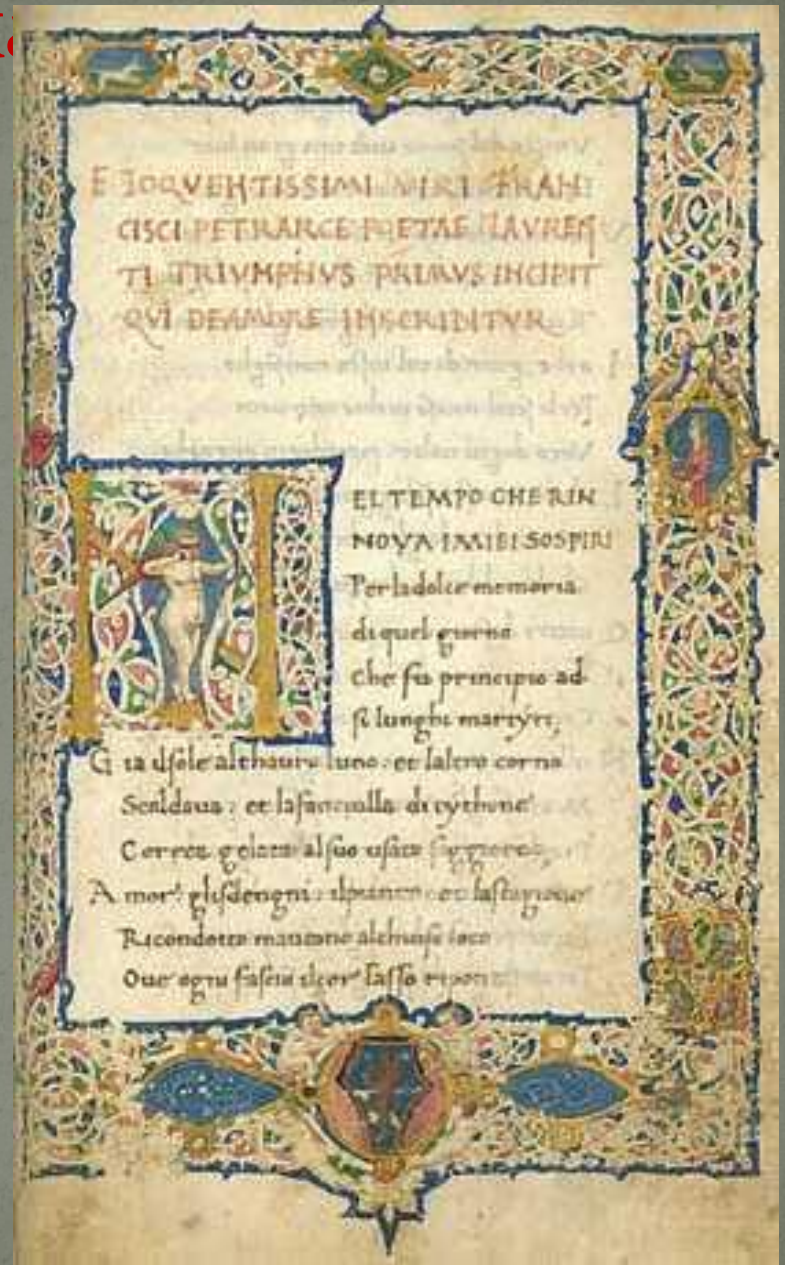 ELOQVENTISSIMI VIRI FRAN
CISCI PETRARCE POETAE LAVREN
TI TRIVMPHVS PRIMVS INCIPIT
QVI DEAMORE INSCRIBITVR
N EL TEMPO CHE RIN
NOVA I MIEI SOSPIRI
Per la dolce memoria
di quel giorno
Che fu principio ad
si lunghi martyri,
Gia il sole al thauro luno et laltro corno
Scaldaua: et la fanciulla di tythone
Correa gelata al suo usato soggiorno,
Amor gli sdengni il pianto et la stagione
Ricondotto mauano al chiuso loco
Oue ogni fascio il cor lasso ripone